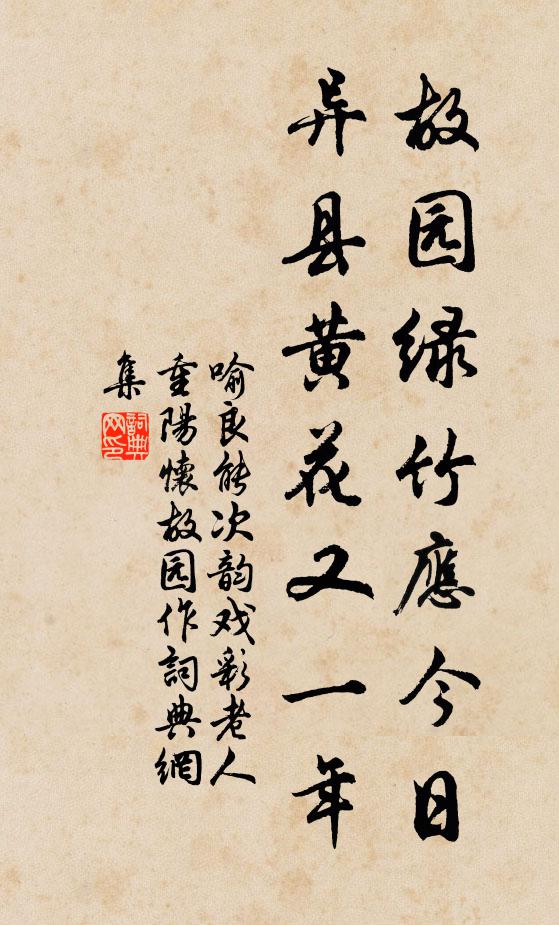 故园绿竹應今日
异县黄花又一年
喻良能次韵戏彩老人
重陽懷故园作詞典網
集
詞典网印